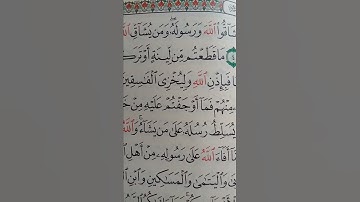 شَاقُّوا۟ ٱللَّهَ وَرَسُولَهُۥ وَمَن يُشَاقِّ ٱللَّهَ
مَا قَطَعْتُم مِّن لِّينَةٍ أَوْ تَرَكْ
فَبِإِذْنِ ٱللَّهِ وَلِيُخْزِىَ ٱلْفَـٰسِقِينَ
مِنْهُمْ فَمَآ أَوْجَفْتُمْ عَلَيْهِ مِنْ خَ
يُسَلِّطُ رُسُلَهُۥ عَلَىٰ مَن يَشَآءُ وَٱللَّهُ
مَّآ أَفَآءَ ٱللَّهُ عَلَىٰ رَسُولِهِۦ مِنْ أَهْلِ
وَٱلْيَتَـٰمَىٰ وَٱلْمَسَـٰكِينِ وَٱبْنِ